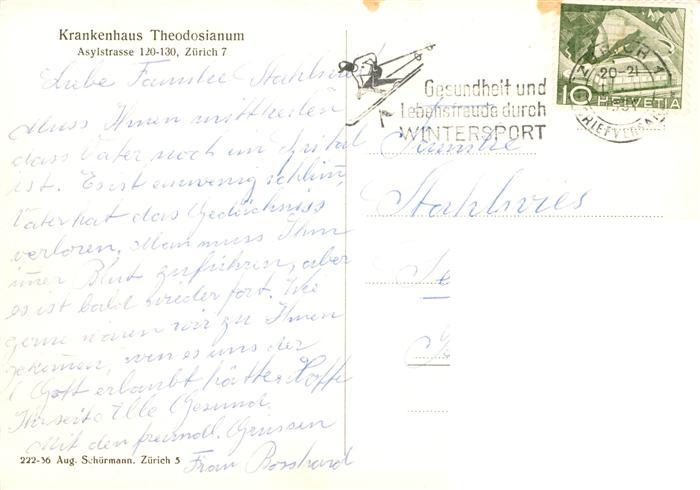 Krankenhaus Theodosianum
Asylstrasse 120-130, Zürich 7
Liebe Familie Stahlvies
Muss Ihnen mitteilen
dass Vater noch im Spital
ist. Es ist ein wenig schlim,
Vater hat das Gedächniss
verloren. Man muss Ihm
imer Blut zuführen, aber
es ist bald wieder fort. Wie
gerne wären wir zu Ihnen
gekomen, wen es uns der
l. Gott erlaubt hätte. Hoffe
Ihr seit Alle Gesund.
Mit den freundl. Grüssen
Frau Bosshard
222-36 Aug. Schürmann, Zürich 5
Gesundheit und
Lebensfreude durch
WINTERSPORT
ZÜRICH
20-21
BRIEFVERSAND
10 HELVETIA
Familie
Stahlvies